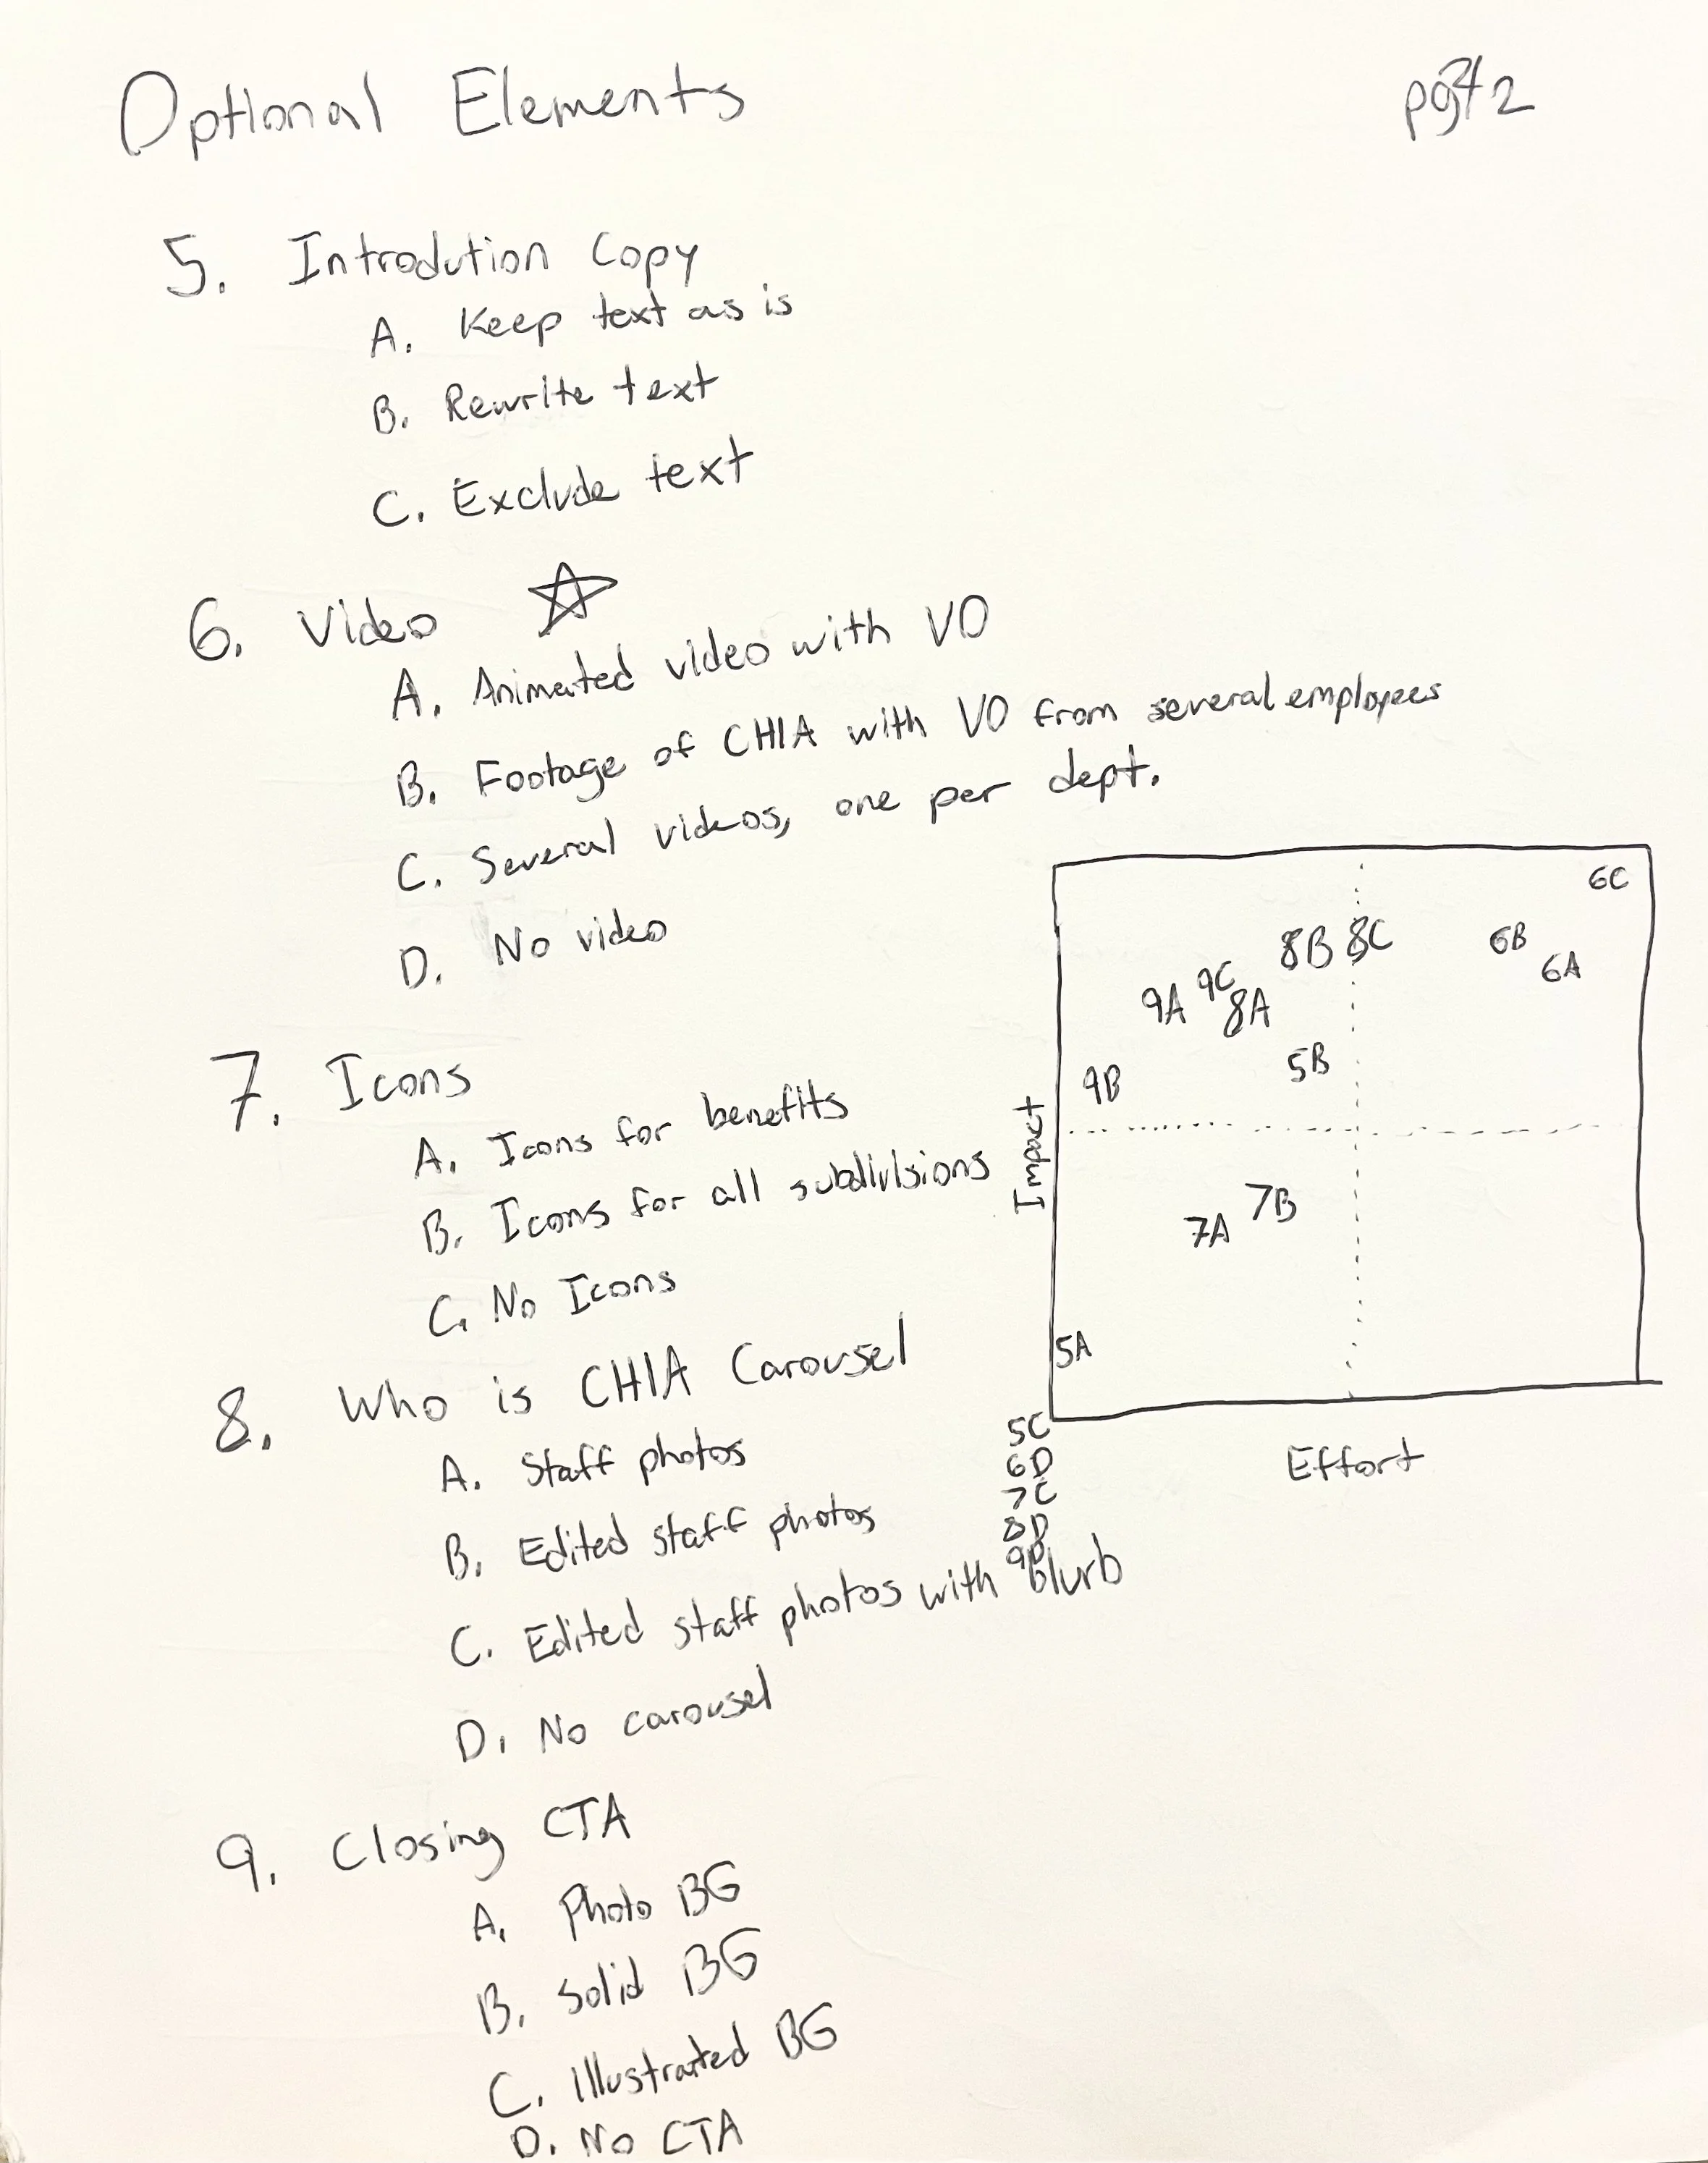 Optional Elements
5. Introdution Copy
A. Keep text as is
B. Rewrite text
C. Exclude text
6. Video
A. Animated video with VO
B. Footage of CHIA with VO from several employees
C. Several videos, one per dept.
D. No video
7. Icons
A. Icons for benefits
B. Icons for all subdivisions
C. No Icons
8. Who is CHIA Carousel
A. Staff photos
B. Edited staff photos
C. Edited staff photos with blurb
D. No carousel
9. Closing CTA
A. Photo BG
B. Solid BG
C. Illustrated BG
D. No CTA
6C
8B 8C 6B
6A
9A 9C 8A
5B
9B
Impact
7A 7B
5A
5C
6D
7C
8D
9D
Effort